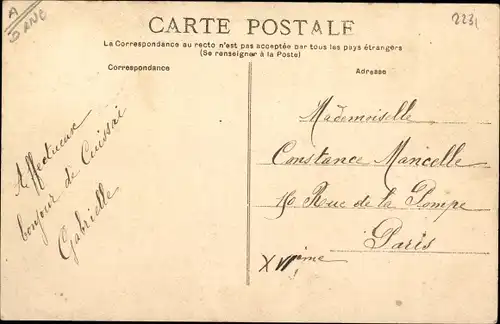 A
SANC
2231
CARTE POSTALE
La Correspondance au recto n'est pas acceptée par tous les pays étrangers
(Se renseigner à la Poste)
Correspondance
Adresse
Affectueux
bonjour de Cuissai
Gabrielle
Mademoiselle
Constance Mancelle
Rue de la Pompe
Paris
XVIème